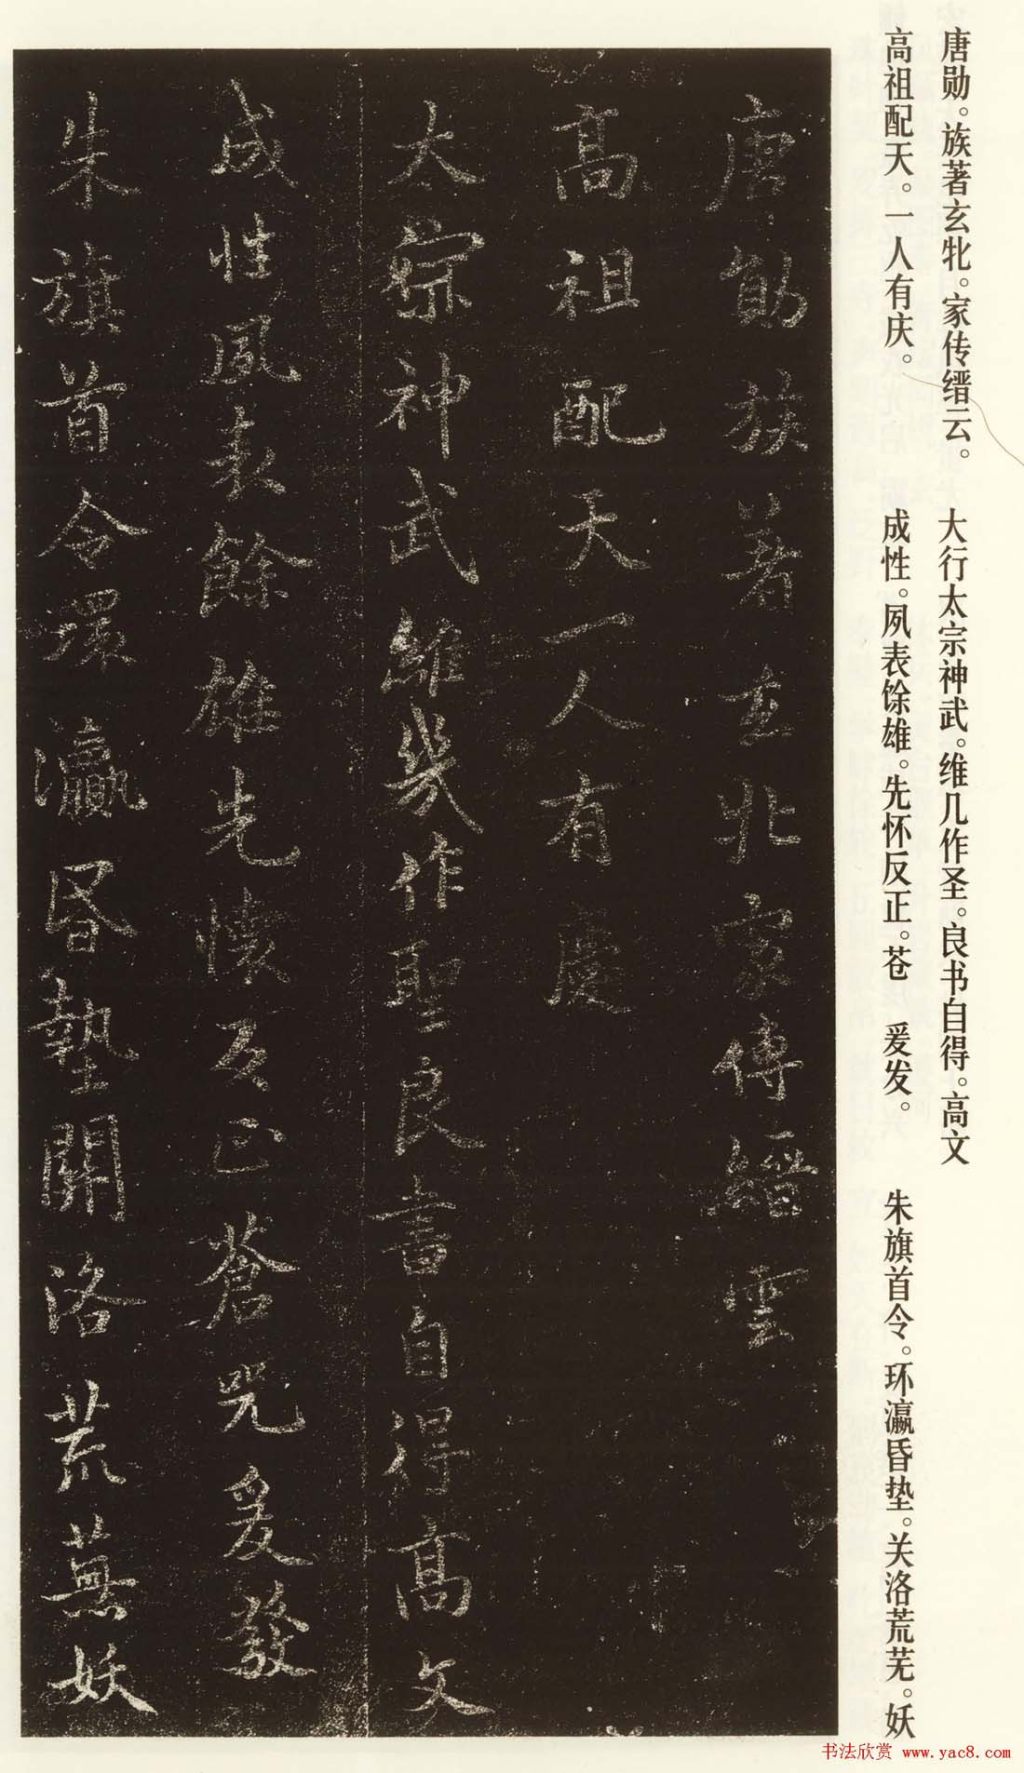 唐勋。族著玄牝。家传缙云。 大行太宗神武。维几作圣。良书自得。高文
高祖配天。一人有庆。 成性。夙表馀雄。先怀反正。苍 爰发。 朱旗首令。环瀛昏垫。关洛荒芜。妖
唐勛族著玄牝家傳縉雲
高祖配天一人有慶
太宗神武維幾作聖良書自得高文
成性夙表餘雄先懷反正蒼兕爰發
朱旗首令環瀛昏墊關洛荒蕪妖
书法欣赏 www.yac8.com